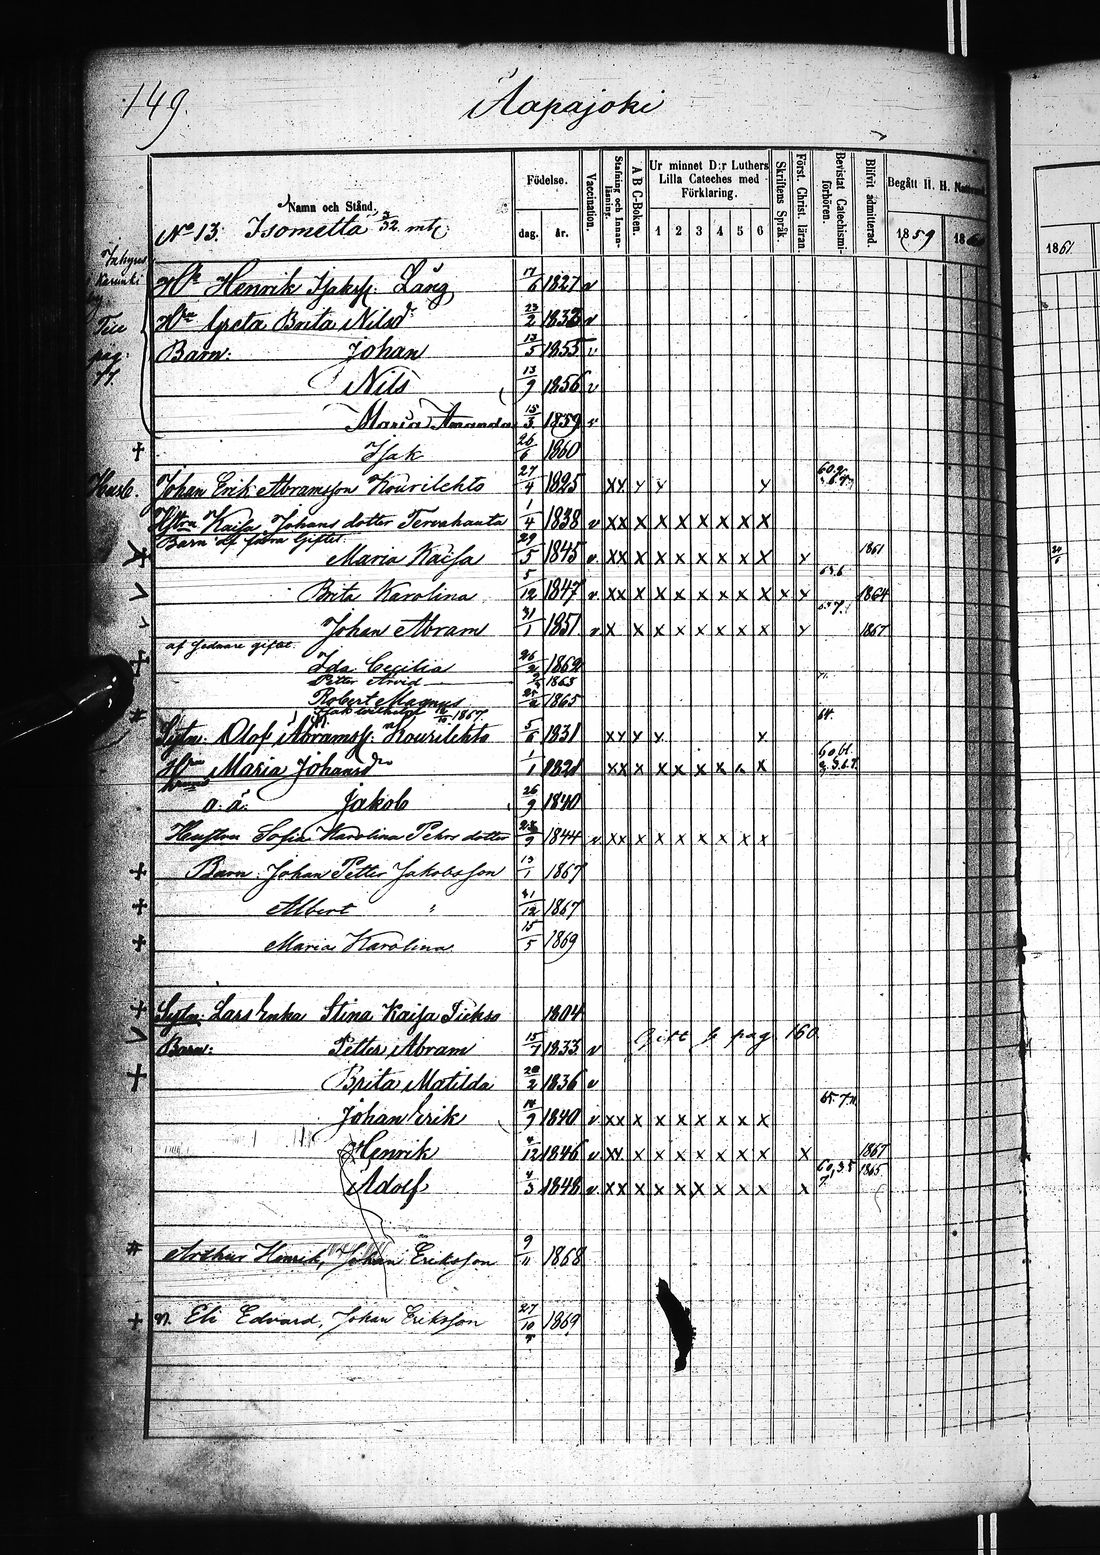 149.
Aapajoki
Namn och Stånd.
Födelse.
dag. år.
Vaccination.
Stafning och Innanläsning.
A B C-Boken.
Ur minnet D:r Luthers Lilla Cateches med Förklaring.
1 2 3 4 5 6
Skriftens Språk.
Först. Christ. läran.
Bevistat Catechismi-förhören.
Blifvit admitterad.
Begått H. H. Nattvard.
1859 18
1861
No 13. Isometta 3/32 mtl.
Henrik Isakss. Lång 17/6 1827 v
Greta Brita Nilsd. 23/2 1833 v
Barn: Johan 13/5 1855 v
Nils 13/9 1856 v
Maria Amanda 15/3 1859 v
pag. 77.
+ Isak 26/6 1860
Husb. Johan Erik Abramsson Kourilehto 27/4 1825 xx y y y
Hstru Kaisa Johans dotter Tervahauta 1/4 1838 v xx x x x x x x x
Barn af förra Giftet
Maria Kaisa 29/5 1845 v. xx x x x x x x x y 1861
Brita Karolina 5/12 1847 v xx x x x x x x x x x 1864
Johan Abram 31/1 1851 v x x x x x x x x y 1867
af sednare giftet.
+ Ida Cecilia 26/2 1862
Peter Arvid 1863
Robert Magnus 25/2 1865
1867.
# Sytn: Olof Abramss. Kourilehto 5/6 1831 xx y y y 64.
Maria Johansd. 1/1 1821 xx x x x x x x x
a. ä. Jakob 26/9 1840
Hustru Sofia Karolina Pehrs dotter 23/9 1844 v xx x x x x x x x
+ Barn: Johan Petter Jakobsson 13/1 1867
+ Albert " 31/12 1867
+ Maria Karolina 15/5 1869
+ Sytn: Lars Enka Stina Kaisa 1804
Barn: Petter Abram 15/1 1833 v Gift pag 160.
+ Brita Matilda 20/2 1836 v
Johan Erik 14/9 1840 v xx x x x x x x x
Henrik 4/12 1846 v xx x x x x x x x x 1867
Adolf 4/3 1848 v xx x x x x x x x x 1865
# Arthur Henrik, Johan Eriksson 9/11 1868
+ Eli Edvard, Johan Eriksson 27/10 1869